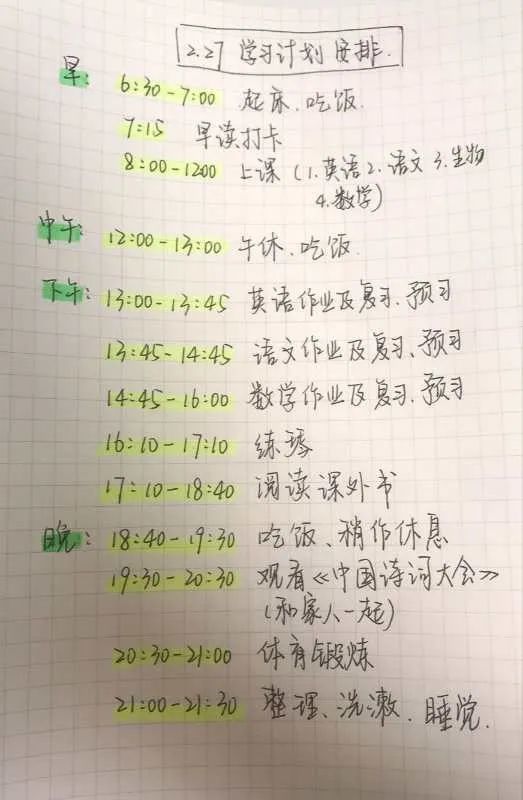 2.27 学习计划安排.
早: 6:30-7:00 起床、吃饭.
7:15 早读打卡
8:00-1200 上课 (1.英语 2.语文 3.生物
4.数学)
中午: 12:00-13:00 午休、吃饭.
下午: 13:00-13:45 英语作业及复习、预习
13:45-14:45 语文作业及复习、预习
14:45-16:00 数学作业及复习、预习
16:10-17:10 练琴
17:10-18:40 阅读课外书
晚: 18:40-19:30 吃饭、稍作休息
19:30-20:30 观看《中国诗词大会》
(和家人一起)
20:30-21:00 体育锻炼
21:00-21:30 整理、洗漱、睡觉.